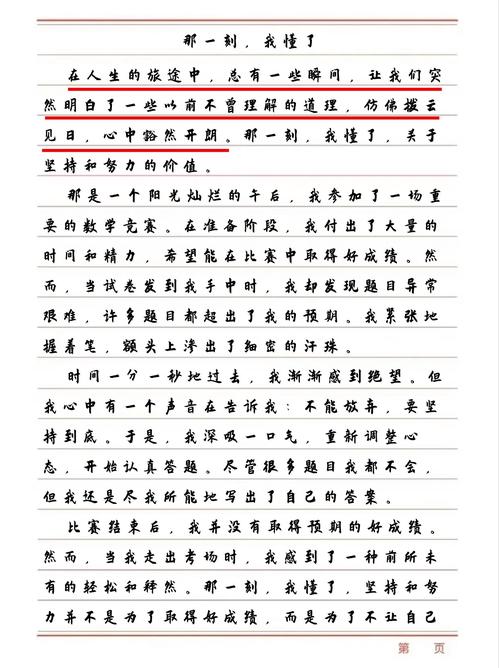 那一刻，我懂了
在人生的旅途中，总有一些瞬间，让我们突
然明白了一些以前不曾理解的道理，仿佛拨云
见日，心中豁然开朗。那一刻，我懂了，关于
坚持和努力的价值。
那是一个阳光灿烂的午后，我参加了一场重
要的数学竞赛。在准备阶段，我付出了大量的
时间和精力，希望能在比赛中取得好成绩。然
而，当试卷发到我手中时，我却发现题目异常
艰难，许多题目都超出了我的预期。我紧张地
握着笔，额头上渗出了细密的汗珠。
时间一分一秒地过去，我渐渐感到绝望。但
我心中有一个声音在告诉我：不能放弃，要坚
持到底。于是，我深吸一口气，重新调整心
态，开始认真答题。尽管很多题目我都不会，
但我还是尽我所能地写出了自己的答案。
比赛结束后，我并没有取得预期的好成绩。
然而，当我走出考场时，我感到了一种前所未
有的轻松和释然。那一刻，我懂了，坚持和努
力并不是为了取得好成绩，而是为了不让自己
第 页